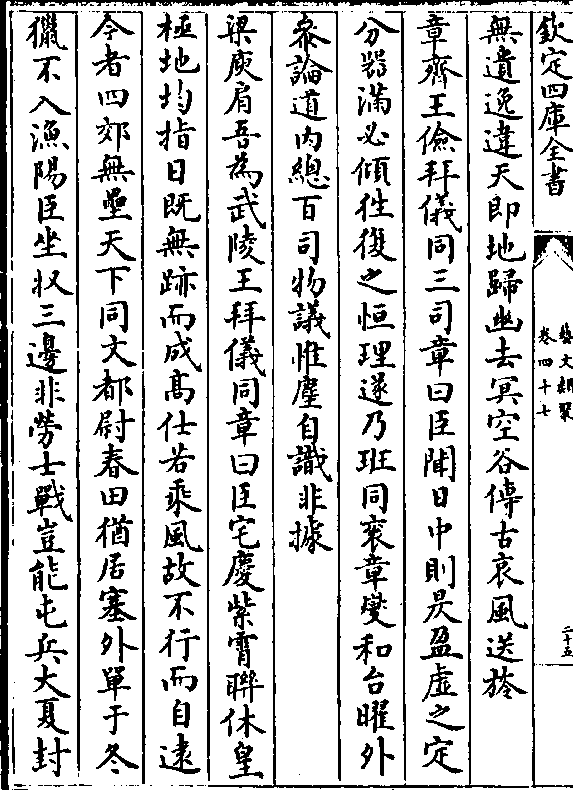 欽定四庫全書
藝文類聚
卷四十七
二十五
無遺逸違天即地歸幽去冥空谷傳古哀風送旍
章齊王儉拜儀同三司章曰臣聞日中則昃盈虛之定
分器滿必傾徃復之恒理遂乃班同衮章爕和台曜外
叅論道内總百司物議惟塵自識非據
梁庾肩吾為武陵王拜儀同章曰臣宅慶紫霄聯休皇
極地均指日既無跡而成高仕若乘風故不行而自逺
今者四郊無壘天下同文都尉春田猶居塞外單于冬
獵不入漁陽臣坐状三邊非勞士戰豈能屯兵大夏封